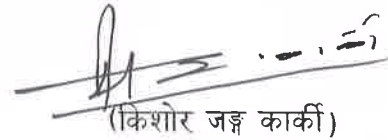 (किशोर जङ्ग कार्की)